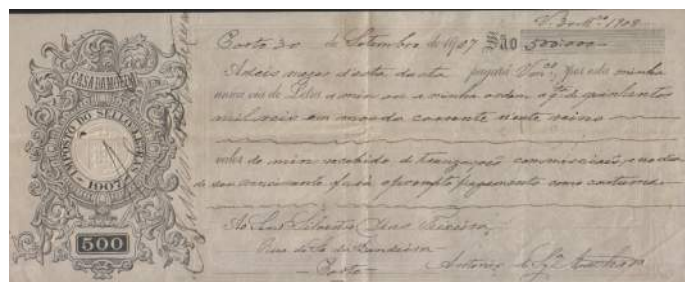 V. 30 M.ço 1908
Porto 30 de Setembro de 1907 São 500:000
A seis mezes d'esta data pagará V.mcê por esta minha
unica via de Letra a mim ou a minha ordem a q.ta de quinhentos
mil reis em moeda corrente n'este reino
valor de mim recebido de transacções commerciais, e no dia
de seu vencimento fará prompto pagamento como costuma.
Ao Snr. Silverio Dias Teixeira
Rua de Sá da Bandeira
Porto
Antonio de
CASA DA MOEDA
IMPOSTO DO SELLO LETRAS
1907
500